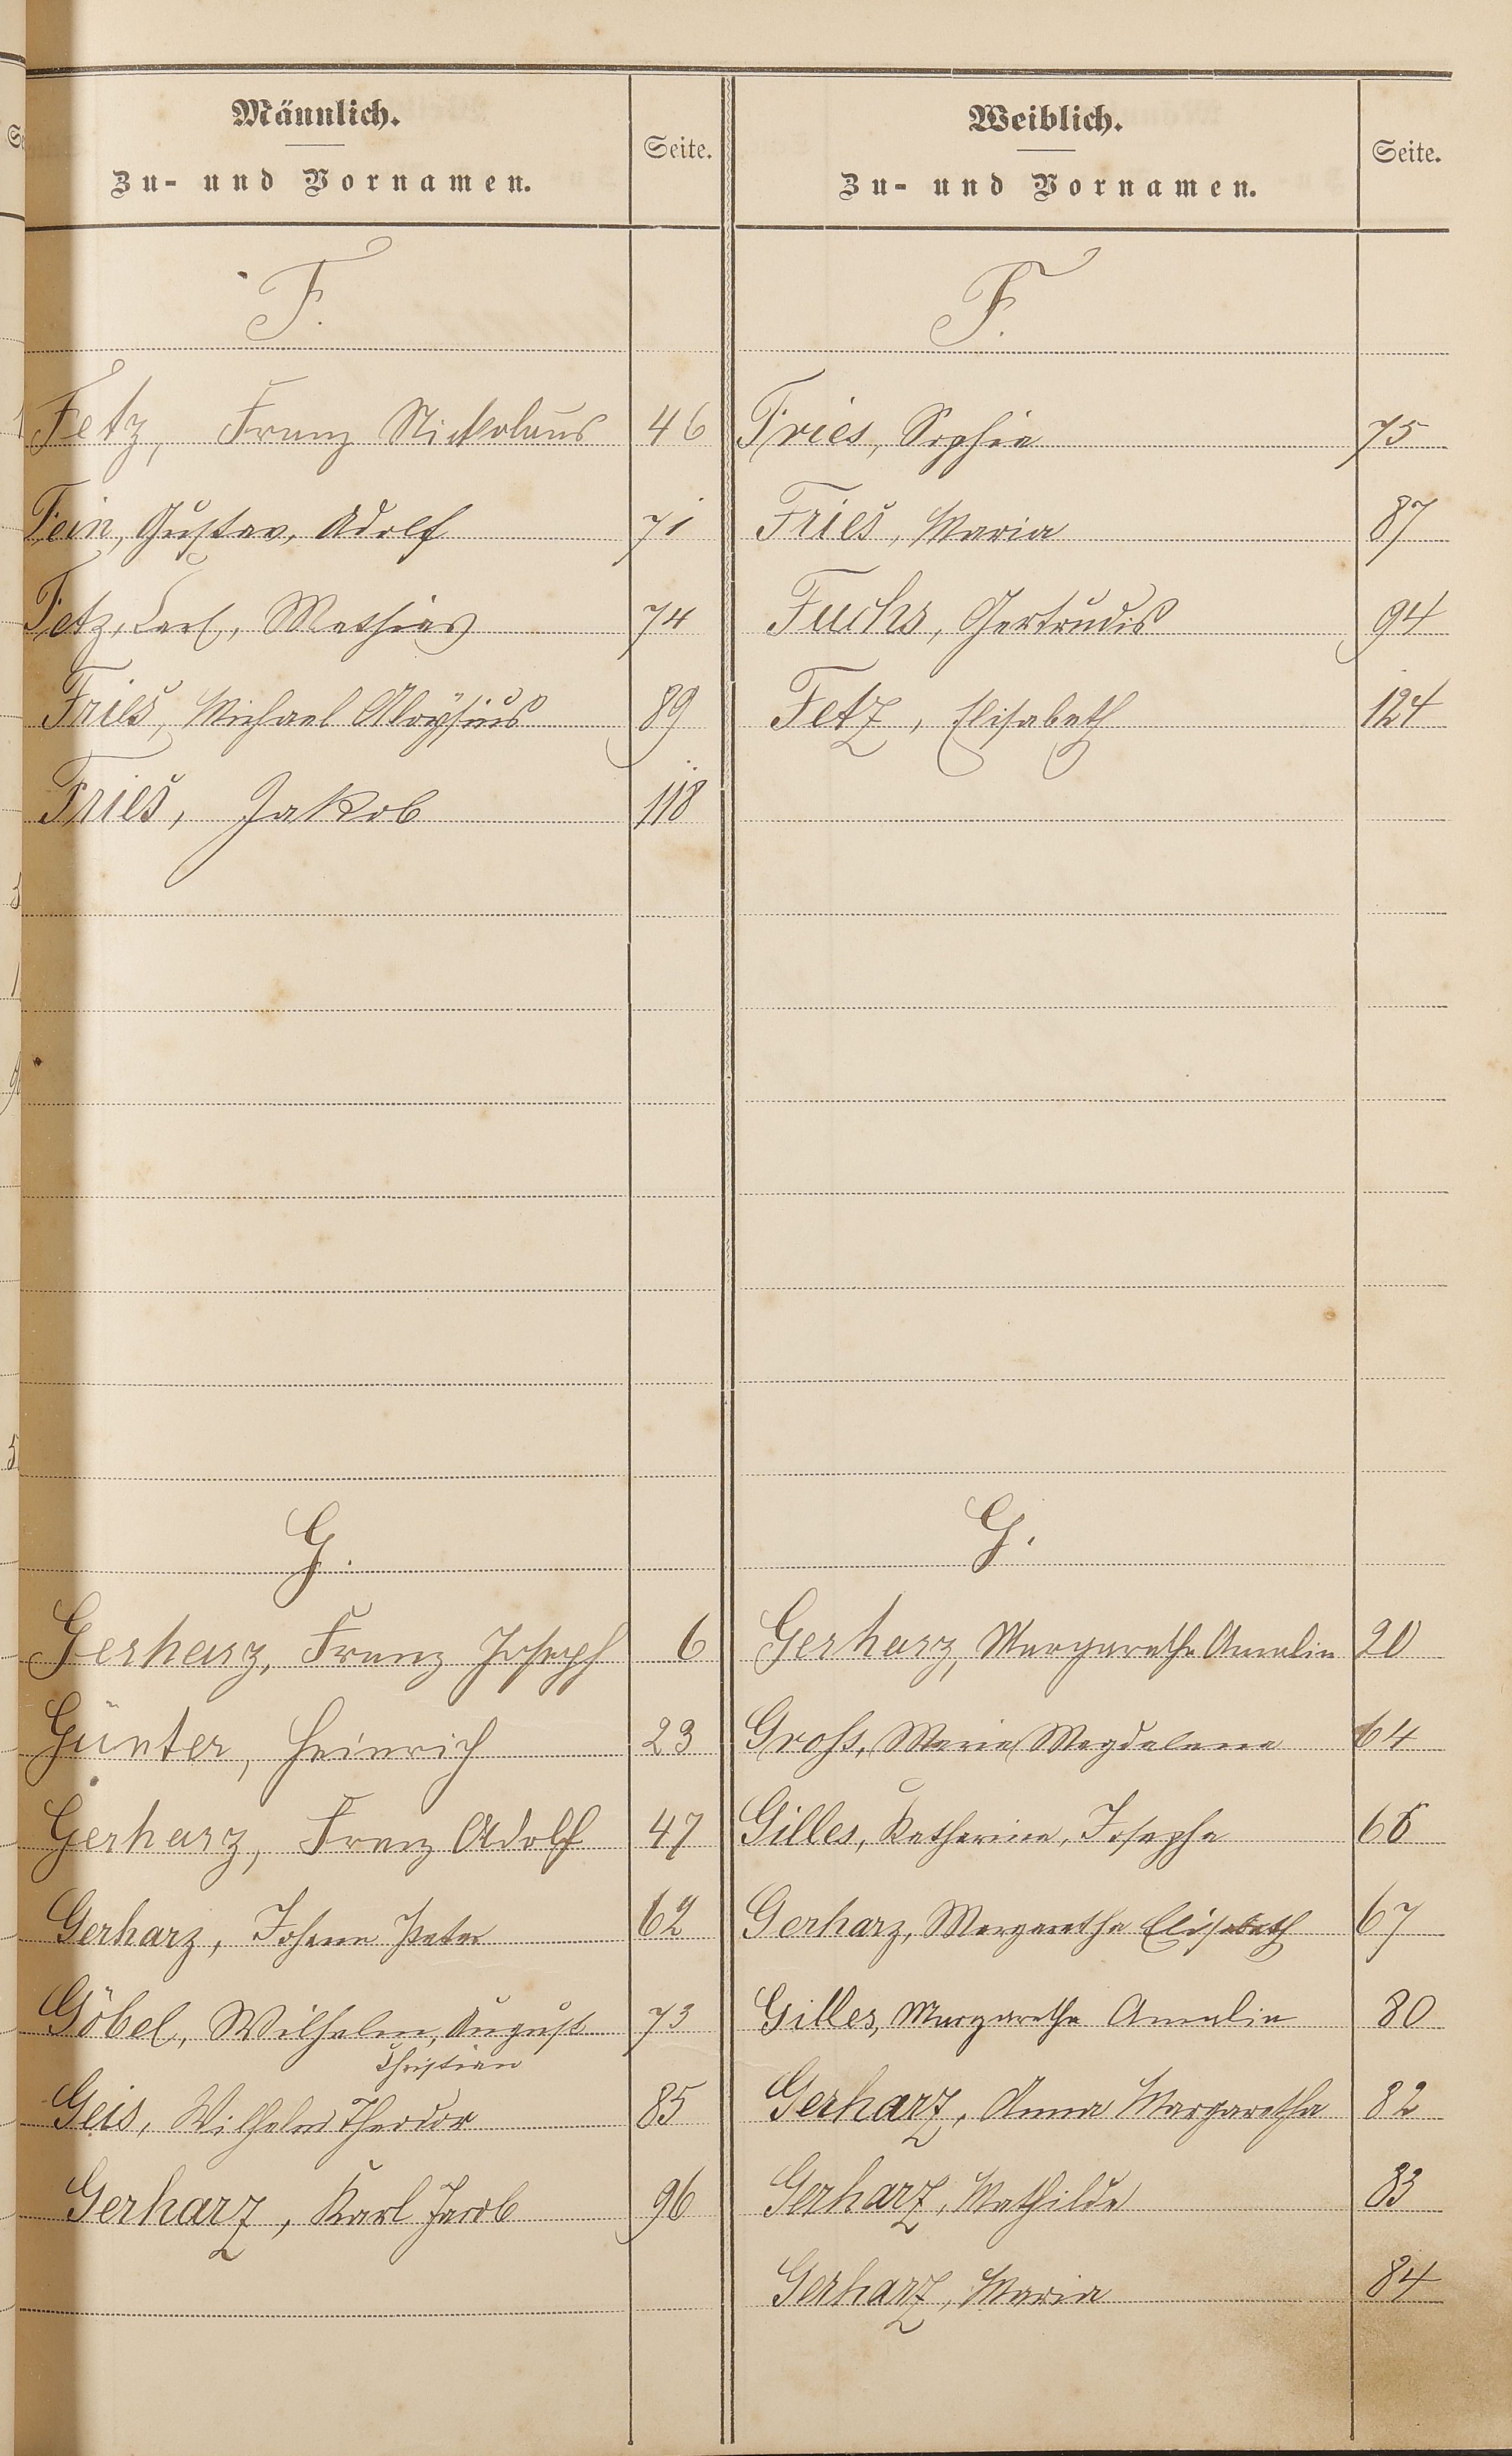 Männlich.
Zu- und Vornamen.
Seite.
Weiblich.
Zu- und Vornamen.
Seite.
F.
F.
Fetz, Franz Nickolaus 46
Fries, Sophia 75
Fein, Gustav, Adolf 71
Fries, Maria 87
Fetz, Carl, Mathias 74
Fuchs, Gertrudis 94
Fries, Michael Aloysius 89
Fetz, Elisabeth 124
Fries, Jakob 118
G.
G.
Gerharz, Franz Joseph 6
Gerharz, Margaretha Amalia 20
Günter, Heinrich 23
Groß, Maria Magdalena 64
Gerharz, Franz Adolf 47
Gilles, Katharina, Josepha
Gerharz, Johann Peter 62
Gerharz, Margaretha Elisabeth 67
Göbel, Wilhelm, August 73
Christian
Gilles, Margaretha Amalia 80
Geis, Wilhelm Theodor 85
Gerharz, Anna Margaretha 82
Gerharz, Karl Jacob 96
Gerharz, Mathilde 83
Gerharz, Maria 84